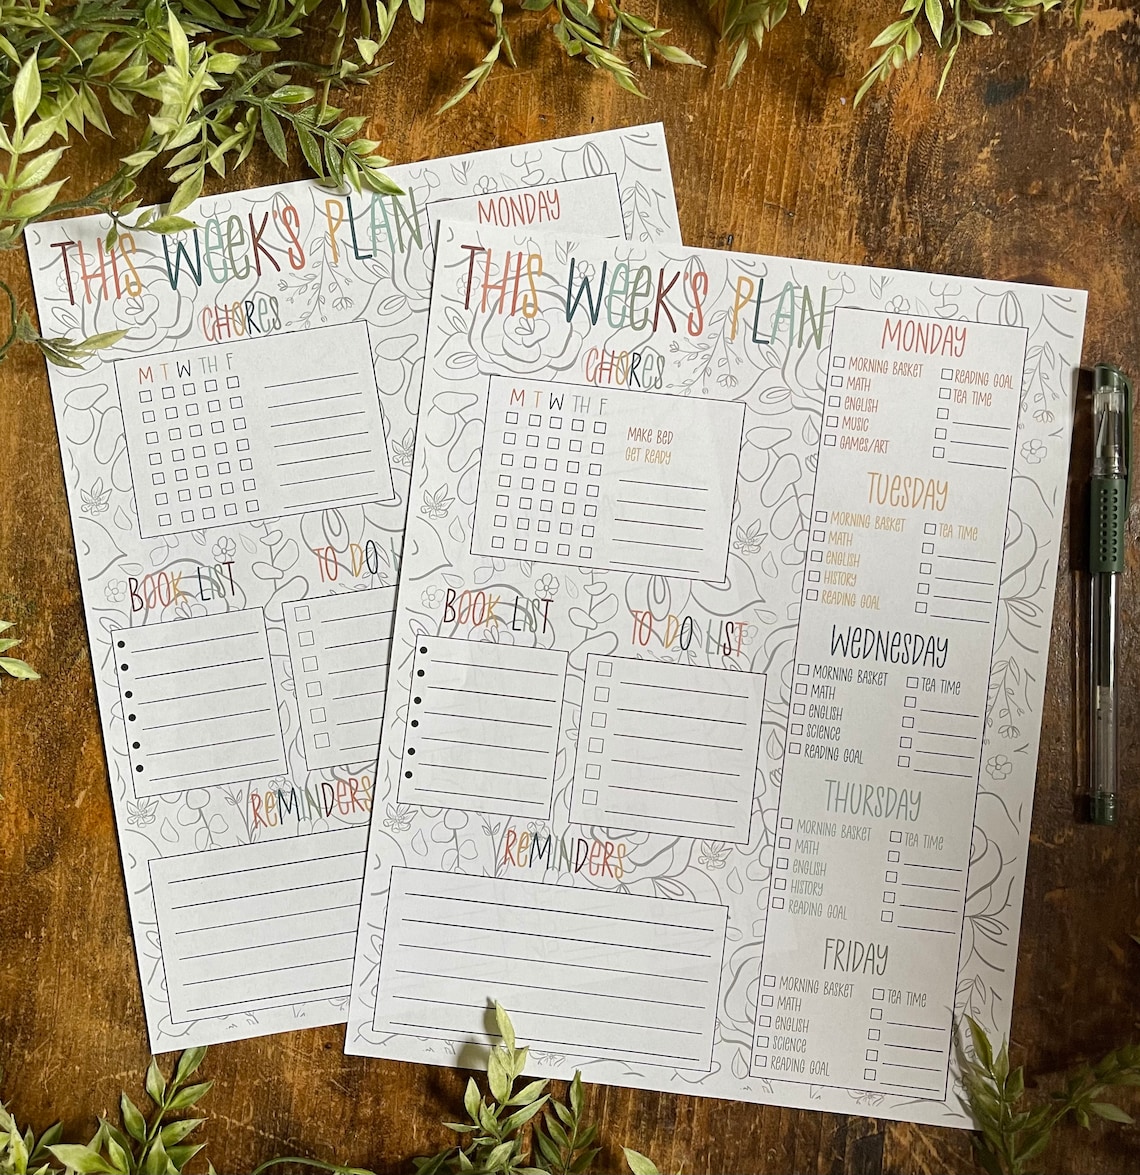 THIS WEEK'S PLAN
MONDAY
CHORES
M T W TH F
BOOK LIST
TO DO LI
REMINDERS
THIS WEEK'S PLAN
CHORES
M T W TH F
MAKE BED
GET READY
BOOK LIST
TO DO LIST
REMINDERS
MONDAY
MORNING BASKET
READING GOAL
MATH
TEA TIME
ENGLISH
MUSIC
GAMES/ART
TUESDAY
MORNING BASKET
TEA TIME
MATH
ENGLISH
HISTORY
READING GOAL
WEDNESDAY
MORNING BASKET
TEA TIME
MATH
ENGLISH
SCIENCE
READING GOAL
THURSDAY
MORNING BASKET
TEA TIME
MATH
ENGLISH
HISTORY
READING GOAL
FRIDAY
MORNING BASKET
TEA TIME
MATH
ENGLISH
SCIENCE
READING GOAL